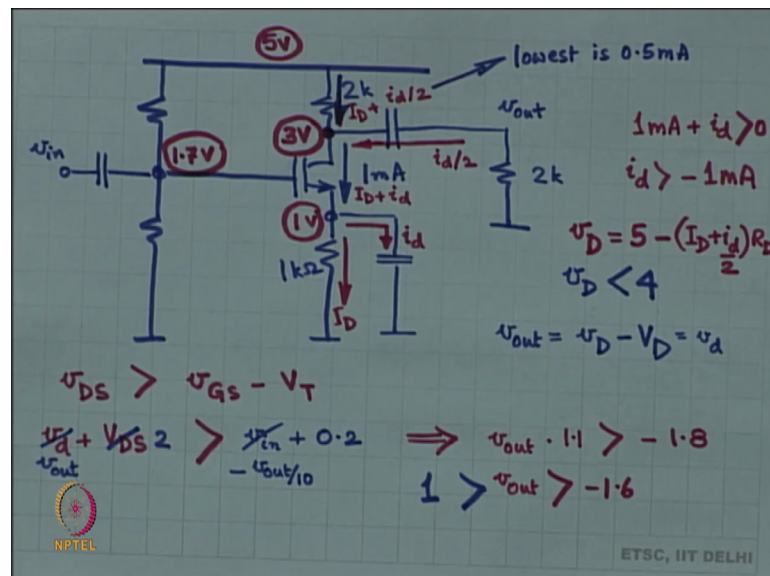 5V
lowest is 0.5mA
2k
I_D + i_d/2
v_out
v_in
1.7V
3V
1mA
i_d/2
2k
I_D + i_d
1V
i_d
1kΩ
I_D
1mA + i_d > 0
i_d > - 1mA
v_D = 5 - (I_D + i_d/2) R_D
v_D < 4
v_out = v_D - V_D = v_d
v_DS > v_GS - V_T
v_d + V_DS 2 > v_in + 0.2 ⇒ v_out · 1.1 > - 1.8
v_out - v_out/10 1 > v_out > -1.6
NPTEL
ETSC, IIT DELHI